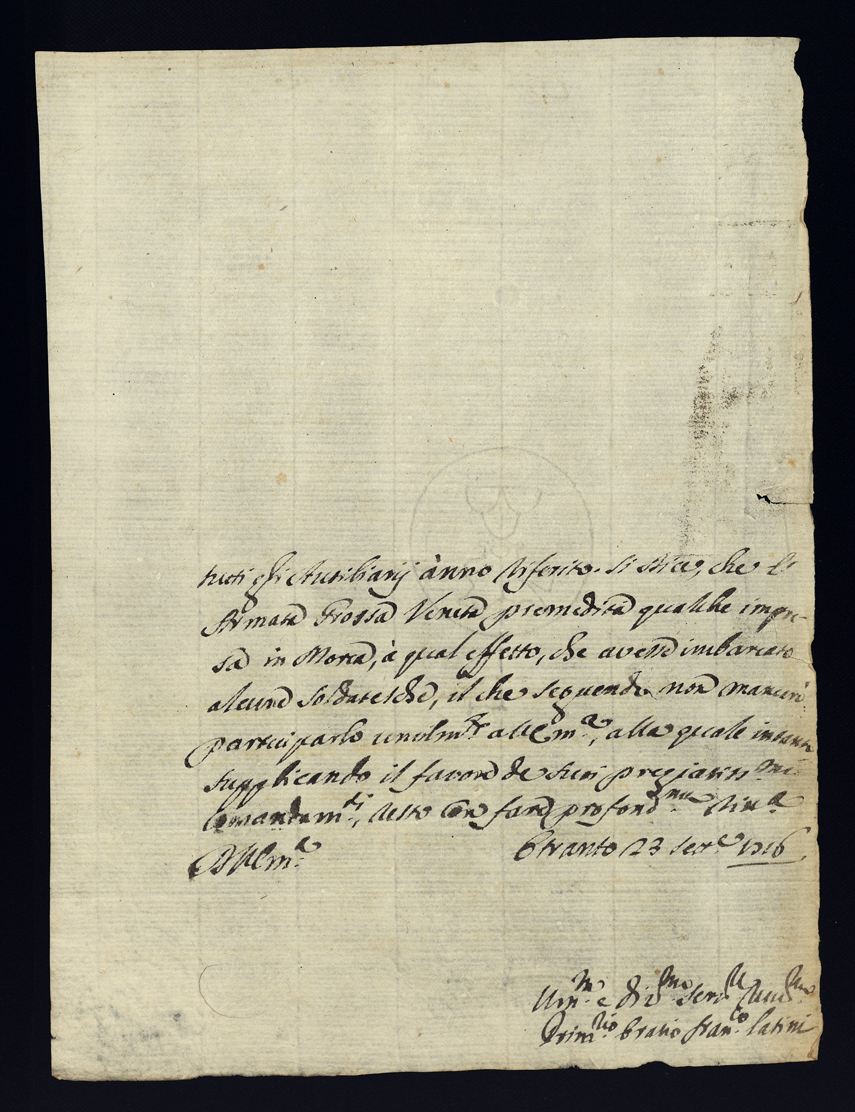 tutti essi Auxiliarij ànno riferito. Si dice, che l'
Armata Grossa Veneta premedita qualche impre-
sa in Morea, à qual effetto, che avesse imbarcato
alcune soldatesche, il che seguendo non mancarò
participarlo umilm.te a VS Ill.ma, alla quale intanto
supplicando il favore de suoi pregiatiss.mi
comandam.ti, resto con fare profond.ma riv.a
D VS Ill.ma Otranto 23 sett.e 1716
Um.mo e div.mo serv.
Orazio Fran.co Latini